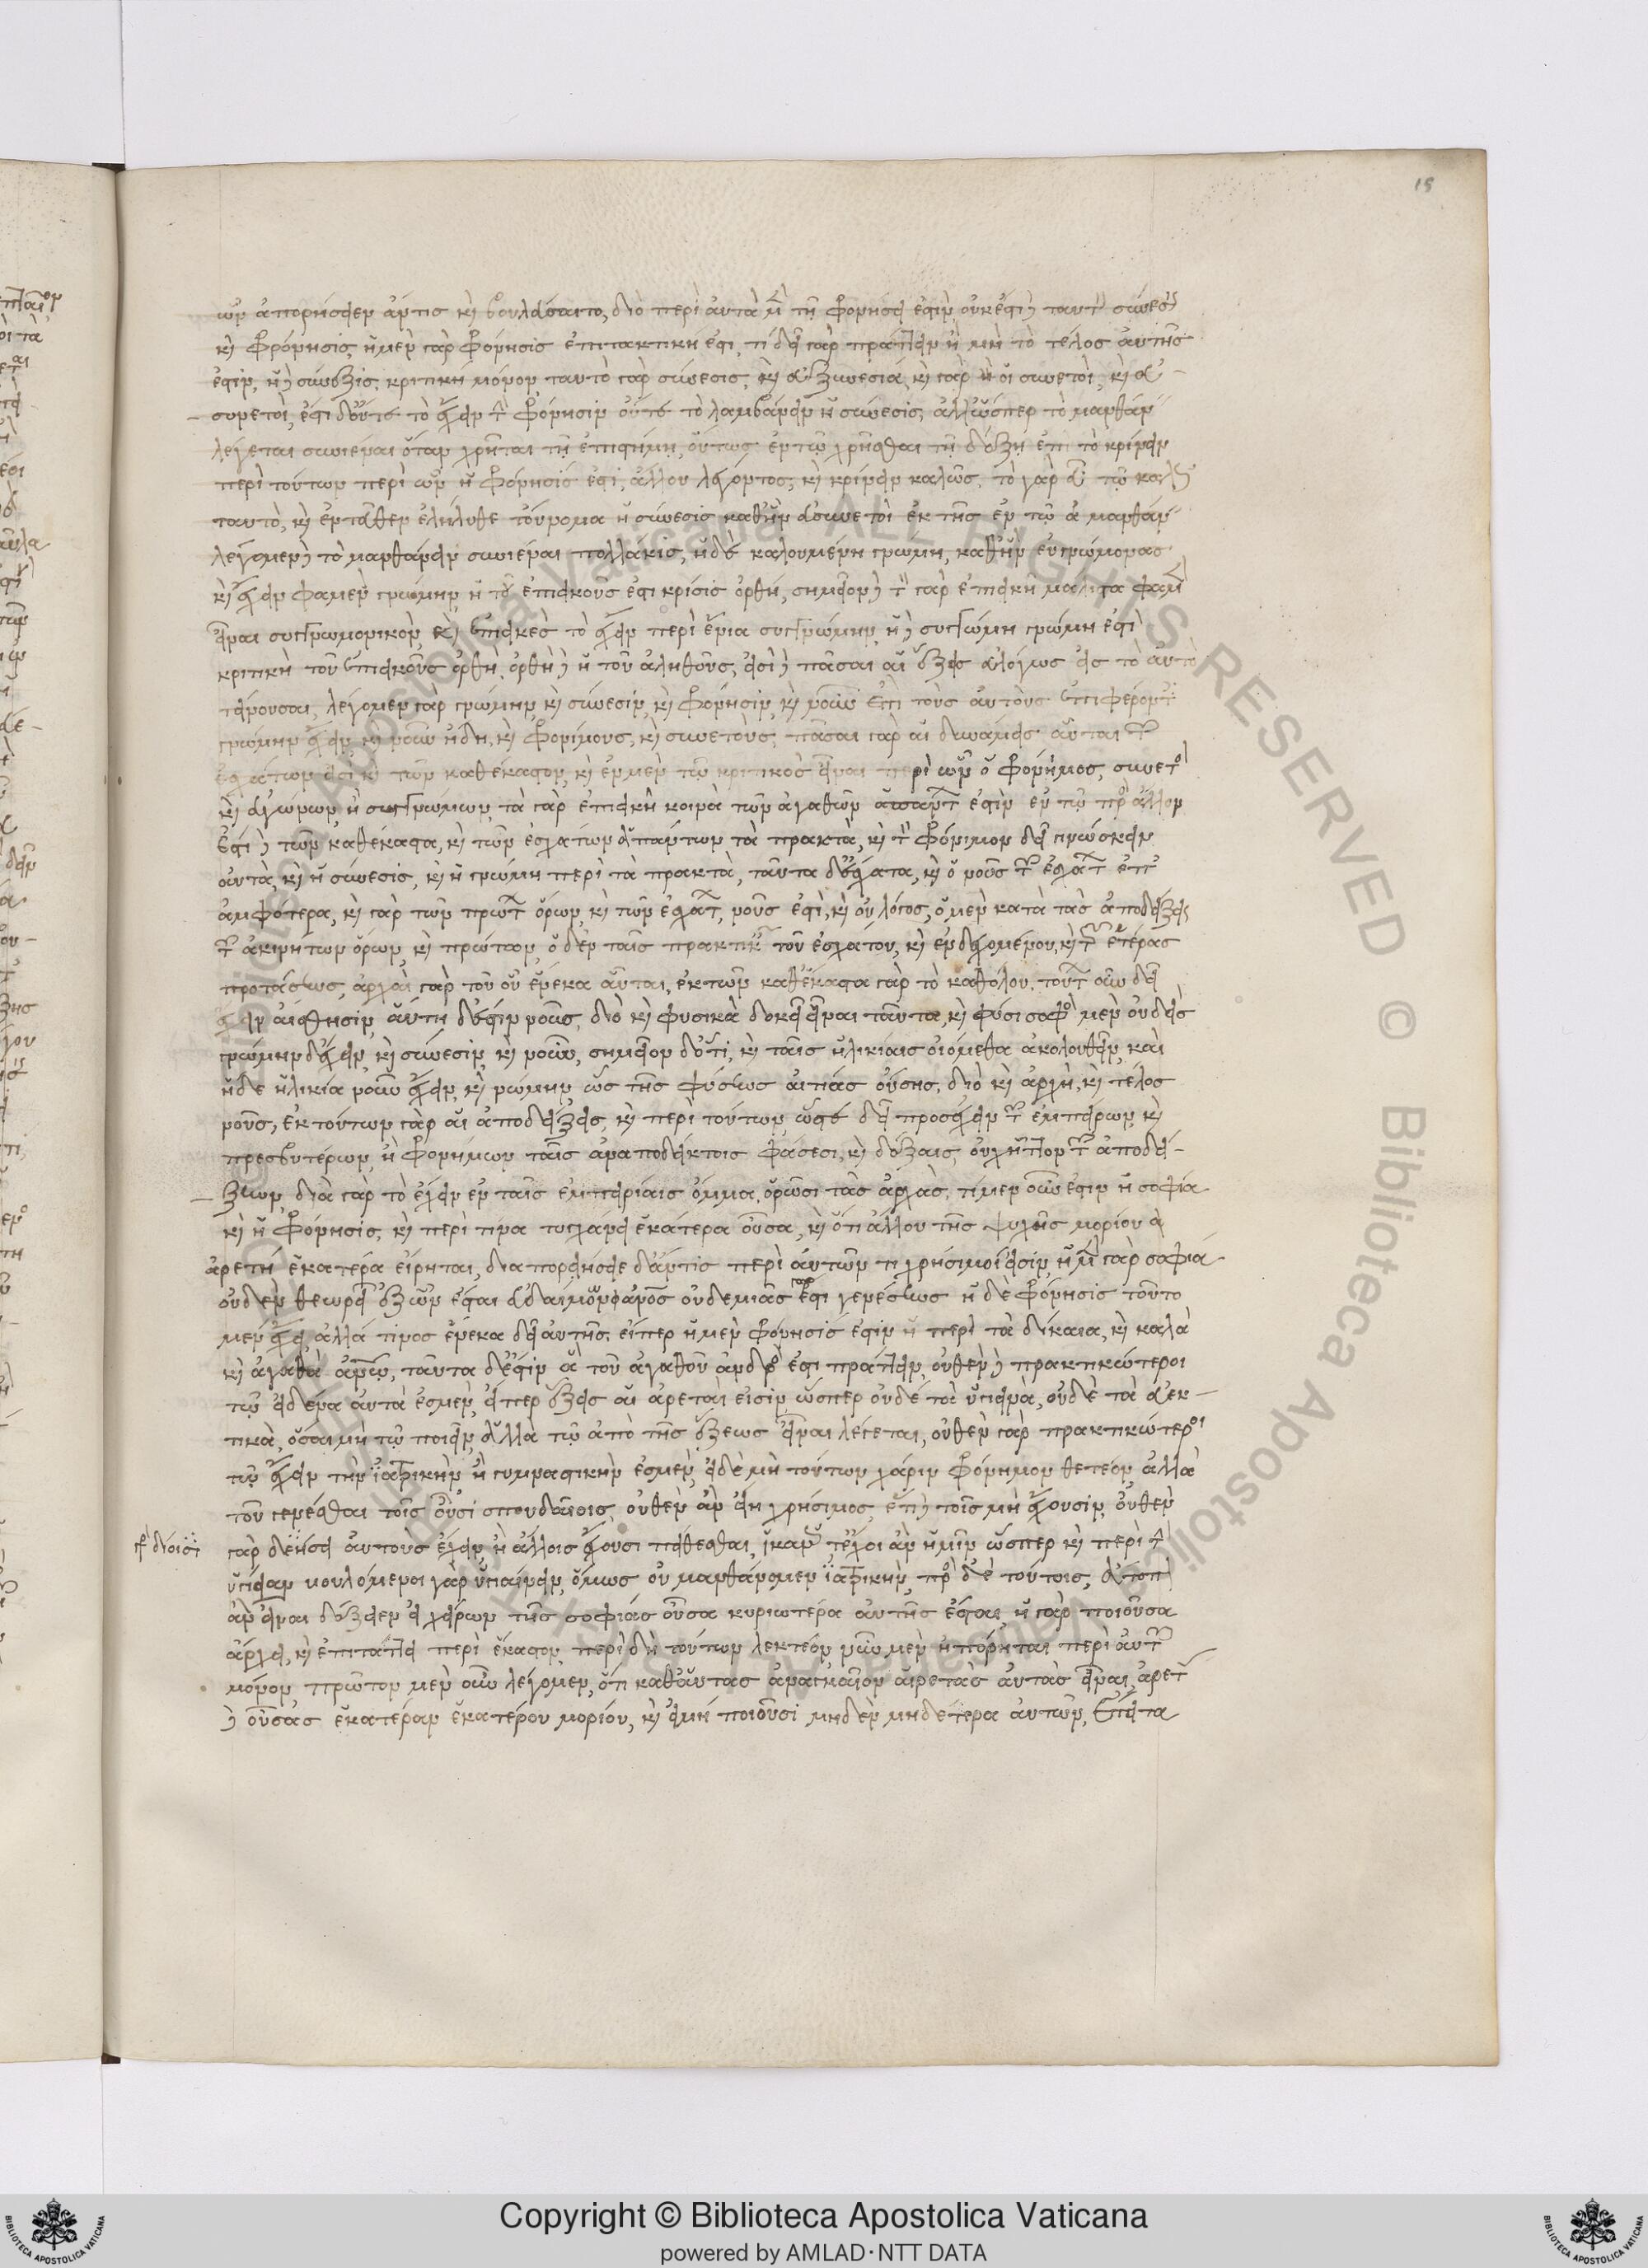 15
ὧν ἀπορήσειεν ἄν τις καὶ βουλεύσαιτο, διὸ περὶ αὐτὰ μὲν τῇ φρονήσει ἐστὶν, οὐκ ἔστι δὲ ταυτὸν σύνεσις
καὶ φρόνησις, ἡ μὲν γὰρ φρόνησις ἐπιτακτική ἐστι, τί δεῖ γὰρ πράττειν ἢ μὴ τὸ τέλος αὐτῆς
ἐστὶν, ἡ δὲ σύνεσις κριτικὴ μόνον ταυτὸ γὰρ σύνεσις, καὶ εὐξυνεσία, καὶ γὰρ ἢ οἱ συνετοὶ, καὶ εὐ-
συνετοὶ, ἔστι δ' οὔτε τὸ ἔχειν τὴν φρόνησιν οὔτε τὸ λαμβάνειν ἡ σύνεσις, ἀλλ' ὥσπερ τὸ μανθάνειν
λέγεται συνιέναι ὅταν χρῆται τῇ ἐπιστήμῃ, οὕτως ἐν τῷ χρῆσθαι τῇ δόξῃ ἐπὶ τὸ κρίνειν
περὶ τούτων περὶ ὧν ἡ φρόνησίς ἐστι, ἄλλου λέγοντος, καὶ κρίνειν καλῶς, τὸ γὰρ εὖ τῷ καλῶς
ταυτὸ, καὶ ἐνταῦθεν ἐλήλυθε τοὔνομα ἡ σύνεσις καθ' ἣν εὐσυνετοὶ ἐκ τῆς ἐν τῷ ἀ μανθάνειν
λέγομεν δὲ τὸ μανθάνειν συνιέναι πολλάκις, ἡ δὲ καλουμένη γνώμη, καθ' ἣν εὐγνώμονας
καὶ ἔχειν φαμὲν γνώμην, ἡ τοῦ ἐπιεικοῦς ἐστι κρίσις ὀρθή, σημεῖον δὲ τὸν γὰρ ἐπιεικῆ μάλιστα φαμὲν
εἶναι συγγνωμονικὸν, καὶ ἐπιεικὲς τὸ ἔχειν περὶ ἔνια συγγνώμην, ἡ δὲ συγγνώμη γνώμη ἐστὶ
κριτικὴ τοῦ ἐπιεικοῦς ὀρθὴ, ὀρθὴ δὲ ἡ τοῦ ἀληθοῦς, εἰσὶ δὲ πᾶσαι αἱ ἕξεις εὐλόγως εἰς τὸ αὐτὸ
τείνουσαι, λέγομεν γὰρ γνώμην, καὶ σύνεσιν, καὶ φρόνησιν, καὶ νοῦν ἐπὶ τοὺς αὐτοὺς ἐπιφέροντες
γνώμην ἔχειν, καὶ νοῦν ἤδη, καὶ φρονίμους, καὶ συνετοὺς, πᾶσαι γὰρ αἱ δυνάμεις αὗται τῶν
ἐσχάτων εἰσὶ καὶ τῶν καθέκαστον, καὶ ἐν μὲν τῷ κριτικὸς εἶναι περὶ ὧν ὁ φρόνιμος, συνετὸς
καὶ εὐγνώμων, ἢ συγγνώμων, τὰ γὰρ ἐπιεικῆ κοινὰ τῶν ἀγαθῶν ἁπάντων ἐστὶν ἐν τῷ πρὸς ἄλλον
ἔστι δὲ τῶν καθέκαστα, καὶ τῶν ἐσχάτων ἅπάντων τὰ πρακτὰ, καὶ τὸν φρόνιμον δεῖ γινώσκειν
αὐτὰ, καὶ ἡ σύνεσις, καὶ ἡ γνώμη περὶ τὰ πρακτὰ, ταῦτα δ' ἔσχατα, καὶ ὁ νοῦς τῶν ἐσχάτων ἐπ'
ἀμφότερα, καὶ γὰρ τῶν πρώτων ὅρων, καὶ τῶν ἐσχάτων, νοῦς ἐστὶ, καὶ οὐ λόγος, ὁ μὲν κατὰ τὰς ἀποδείξεις
τῶν ἀκινήτων ὅρων, καὶ πρώτων, ὁ δ' ἐν ταῖς πρακτικαῖς τοῦ ἐσχάτου, καὶ ἐνδεχομένου, καὶ τῆς ἑτέρας
προτάσεως, ἀρχαὶ γὰρ τοῦ οὗ ἕνεκα αὗται, ἐκ τῶν καθέκαστα γὰρ τὸ καθόλου, τούτων οὖν δεῖ
ἔχειν αἴσθησιν, αὕτη δ' ἐστὶν νοῦς, διὸ καὶ φυσικὰ δοκεῖ εἶναι ταῦτα, καὶ φύσει σοφὸς μὲν οὐδεὶς
γνώμην δ' ἔχειν, καὶ σύνεσιν, καὶ νοῦν, σημεῖον δ' ὅτι, καὶ ταῖς ἡλικίαις οἰόμεθα ἀκολουθεῖν, καὶ
ἥδε ἡλικία νοῦν ἔχειν, καὶ γνώμην, ὡς τῆς φύσεως αἰτίας οὔσης, διὸ καὶ ἀρχὴ, καὶ τέλος
νοῦς, ἐκ τούτων γὰρ αἱ ἀποδείξεις, καὶ περὶ τούτων, ὥστε δεῖ προσέχειν τῶν ἐμπείρων, καὶ
πρεσβυτέρων, ἢ φρονίμων ταῖς ἀναποδείκτοις φάσεσι, καὶ δόξαις, οὐχ ἧττον τῶν ἀποδεί-
ξεων, διὰ γὰρ τὸ ἔχειν ἐν ταῖς ἐμπειρίαις ὄμμα, ὁρῶσι τὰς ἀρχὰς, τί μὲν οὖν ἐστιν ἡ σοφία
καὶ ἡ φρόνησις, καὶ περὶ τίνα τυγχάνει ἑκατέρα οὖσα, καὶ ὅτι ἄλλου τῆς ψυχῆς μορίου ἀ
ἀρετὴ ἑκατέρα εἴρηται, διαπορήσειε δ' ἄν τις περὶ αὐτῶν τί χρήσιμοί εἰσιν, ἡ μὲν γὰρ σοφία
οὐδὲν θεωρεῖ ἐξ ὧν ἔσται εὐδαίμων ἄνθρωπος οὐδεμιᾶς γάρ ἐστι γενέσεως ἡ δὲ φρόνησις τοῦτο
μὲν ἔχει, ἀλλὰ τίνος ἕνεκα δεῖ αὐτῆς, εἴπερ ἡ μὲν φρόνησίς ἐστιν ἡ περὶ τὰ δίκαια, καὶ καλὰ
καὶ ἀγαθὰ ἀνθρώπῳ, ταῦτα δ' ἐστὶν ἃ τοῦ ἀγαθοῦ ἀνδρός ἐστι πράττειν, οὐθὲν δὲ πρακτικώτεροι
τῷ εἰδέναι αὐτὰ ἐσμὲν, εἴπερ ἕξεις αἱ ἀρεταὶ εἰσὶν ὥσπερ οὐδὲ τὰ ὑγιεινὰ, οὐδὲ τὰ εὐεκ-
τικὰ, ὅσα μὴ τῷ ποιεῖν, ἀλλὰ τῷ ἀπὸ τῆς ἕξεως εἶναι λέγεται, οὐθὲν γὰρ πρακτικώτεροι
τῷ ἔχειν τὴν ἰατρικὴν, ἢ γυμναστικὴν ἐσμὲν, εἰ δὲ μὴ τούτων χάριν φρόνιμον θετέον, ἀλλὰ
τοῦ γενέσθαι τοῖς οὖσι σπουδαίοις, οὐθὲν ἂν εἴη χρήσιμος, ἔτι δὲ τοῖς μὴ ἔχουσιν, οὐθὲν
γὰρ διοίσει αὐτοὺς ἔχειν, ἢ ἄλλοις ἔχουσι πείθεσθαι, ἱκανῶς τ' ἔχοι ἂν ἡμῖν ὥσπερ καὶ περὶ τὴν
ὑγίειαν βουλόμενοι γὰρ ὑγιαίνειν, ὅμως οὐ μανθάνομεν ἰατρικὴν, πρὸς δὲ τούτοις, ἄτοπον
ἂν εἶναι δόξειεν, εἰ χείρων τῆς σοφίας οὖσα κυριωτέρα αὐτῆς ἔσται, ἡ γὰρ ποιοῦσα
ἄρχει, καὶ ἐπιτάττει περὶ ἕκαστον, περὶ δὴ τούτων λεκτέον, νῦν μὲν ἠπόρηται περὶ αὐτῶν
μόνον, πρῶτον μὲν οὖν λέγομεν, ὅτι καθ' αὑτὰς ἀναγκαῖον αἱρετὰς αὐτὰς εἶναι, ἀρετάς
δὲ οὔσας ἑκατέραν ἑκατέρου μορίου, καὶ εἰ μὴ ποιοῦσι μηδὲν μηδετέρα αὐτῶν, ἔπειτα
Copyright © Biblioteca Apostolica Vaticana
powered by AMLAD·NTT DATA